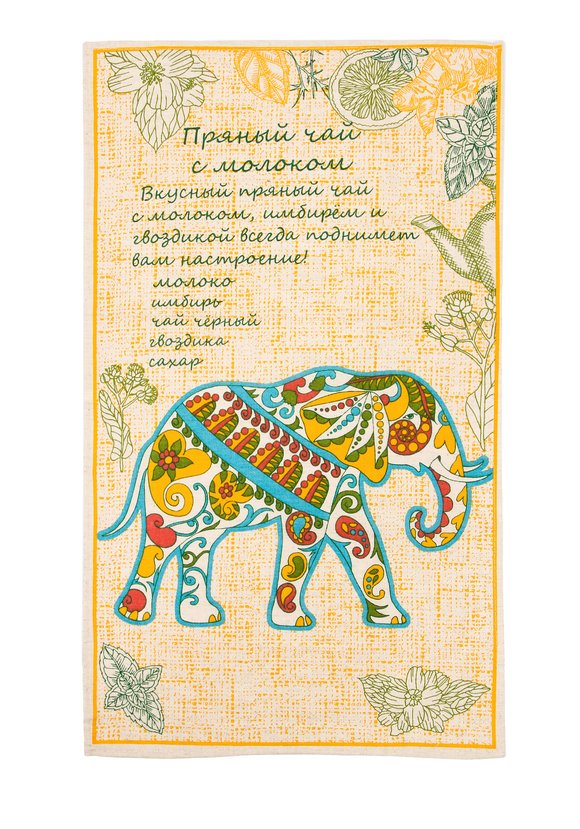 Пряный чай
с молоком
Вкусный пряный чай
с молоком, имбирём и
гвоздикой всегда поднимет
вам настроение!
молоко
имбирь
чай чёрный
гвоздика
сахар